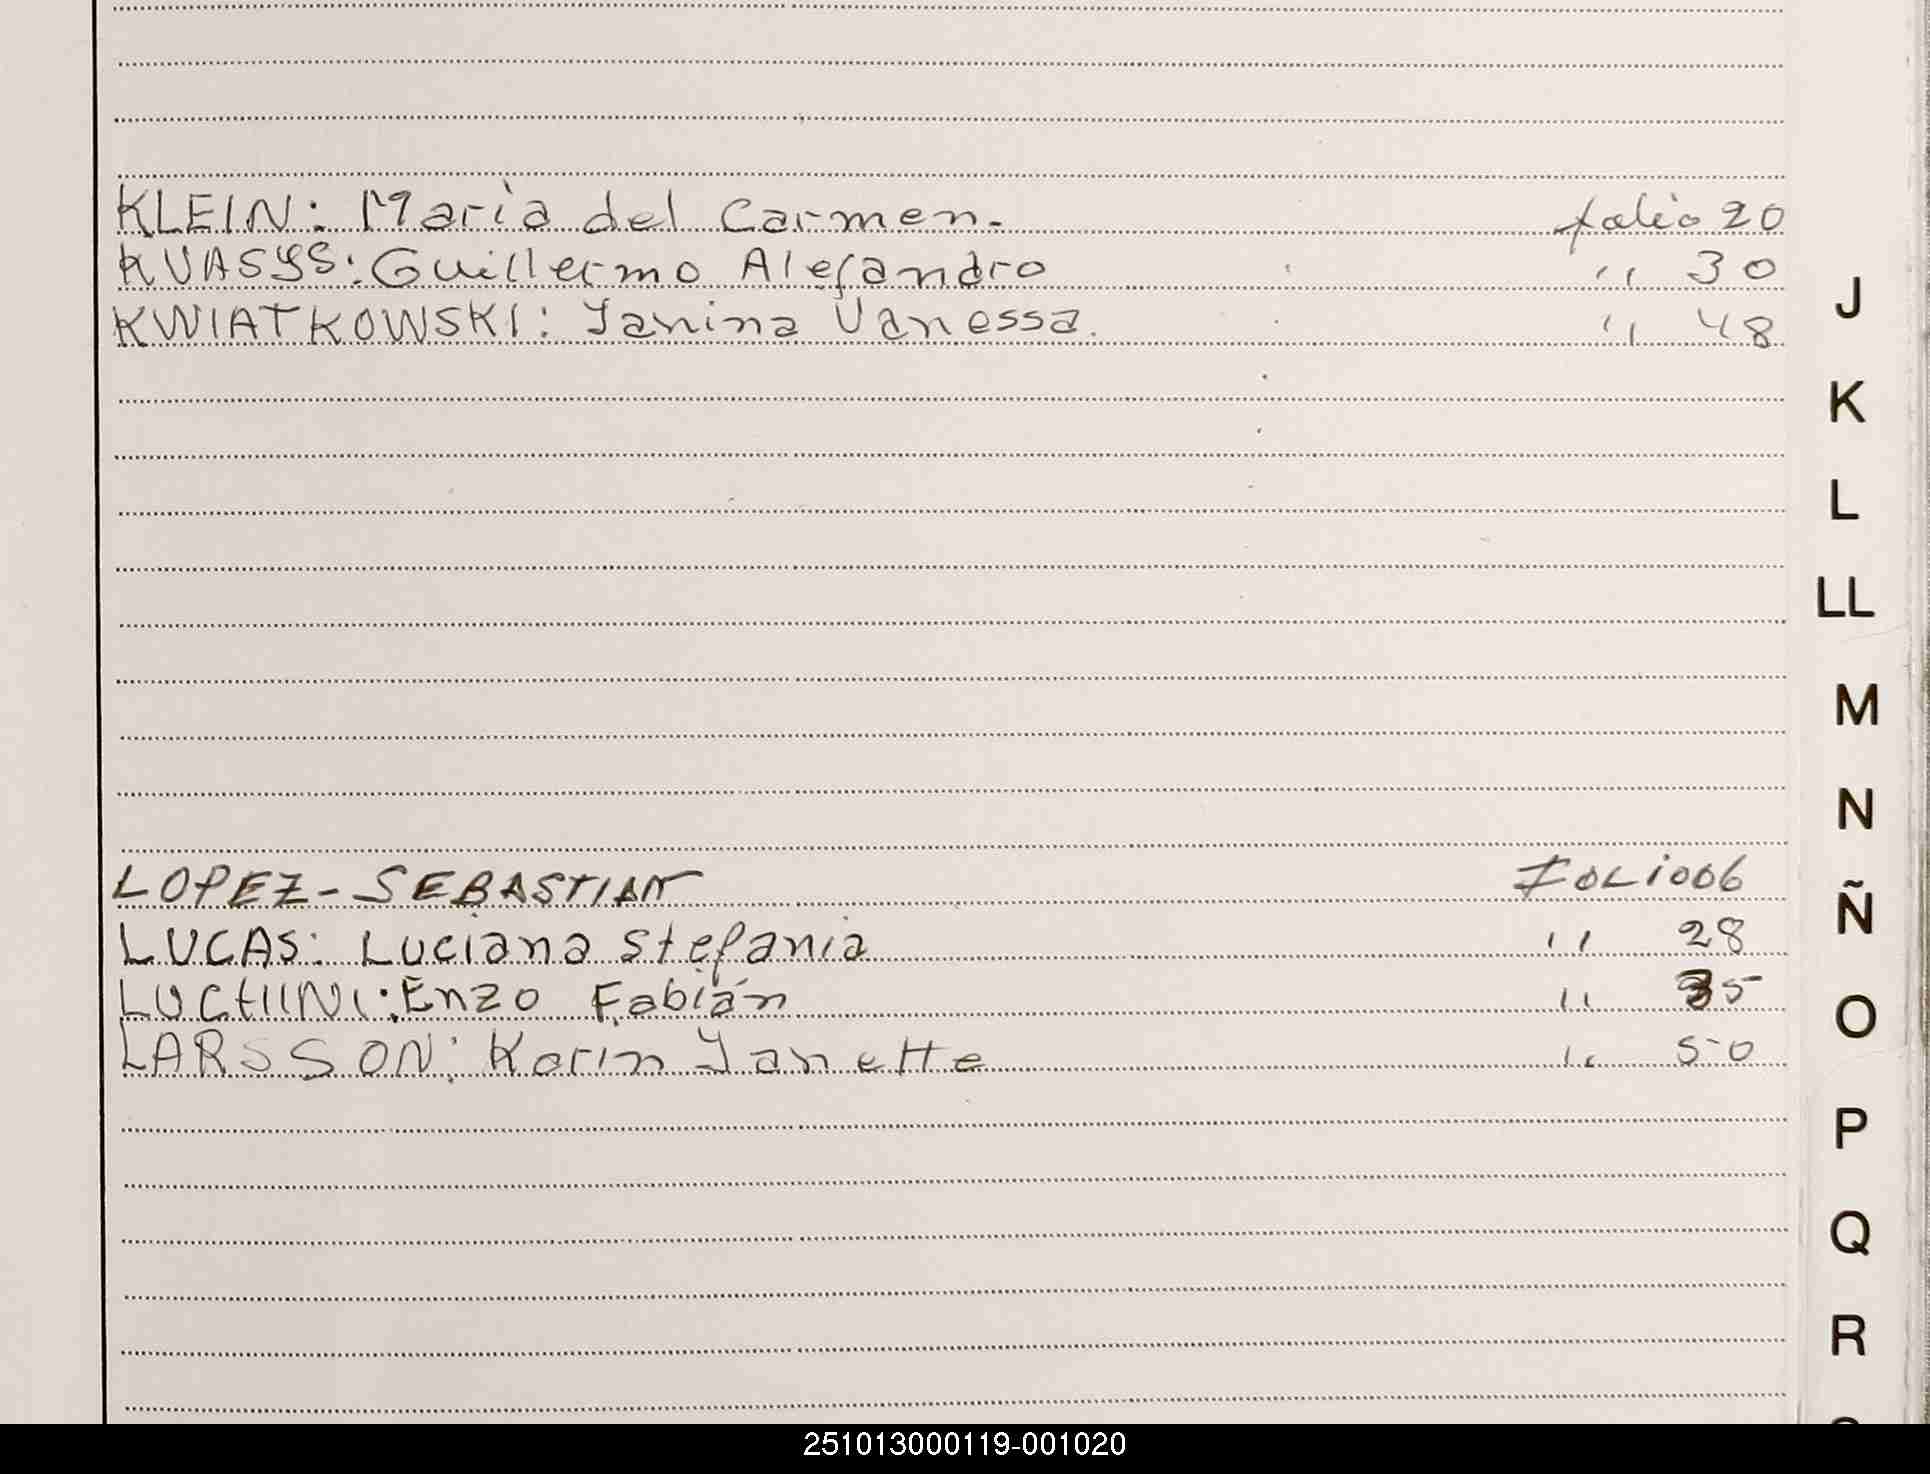 KLEIN: Maria del Carmen. folio 20
KUASYS: Guillermo Alejandro " 30
KWIATKOWSKI: Yanina Vanessa. " 48
J
K
L
LL
M
LOPEZ - SEBASTIAN FOLIO 06
LUCAS: Luciana Stefania " 28
LUCHINI: Enzo Fabián " 35
LARSSON: Karin Yanette " 50
N
Ñ
O
P
Q
R
251013000119-001020